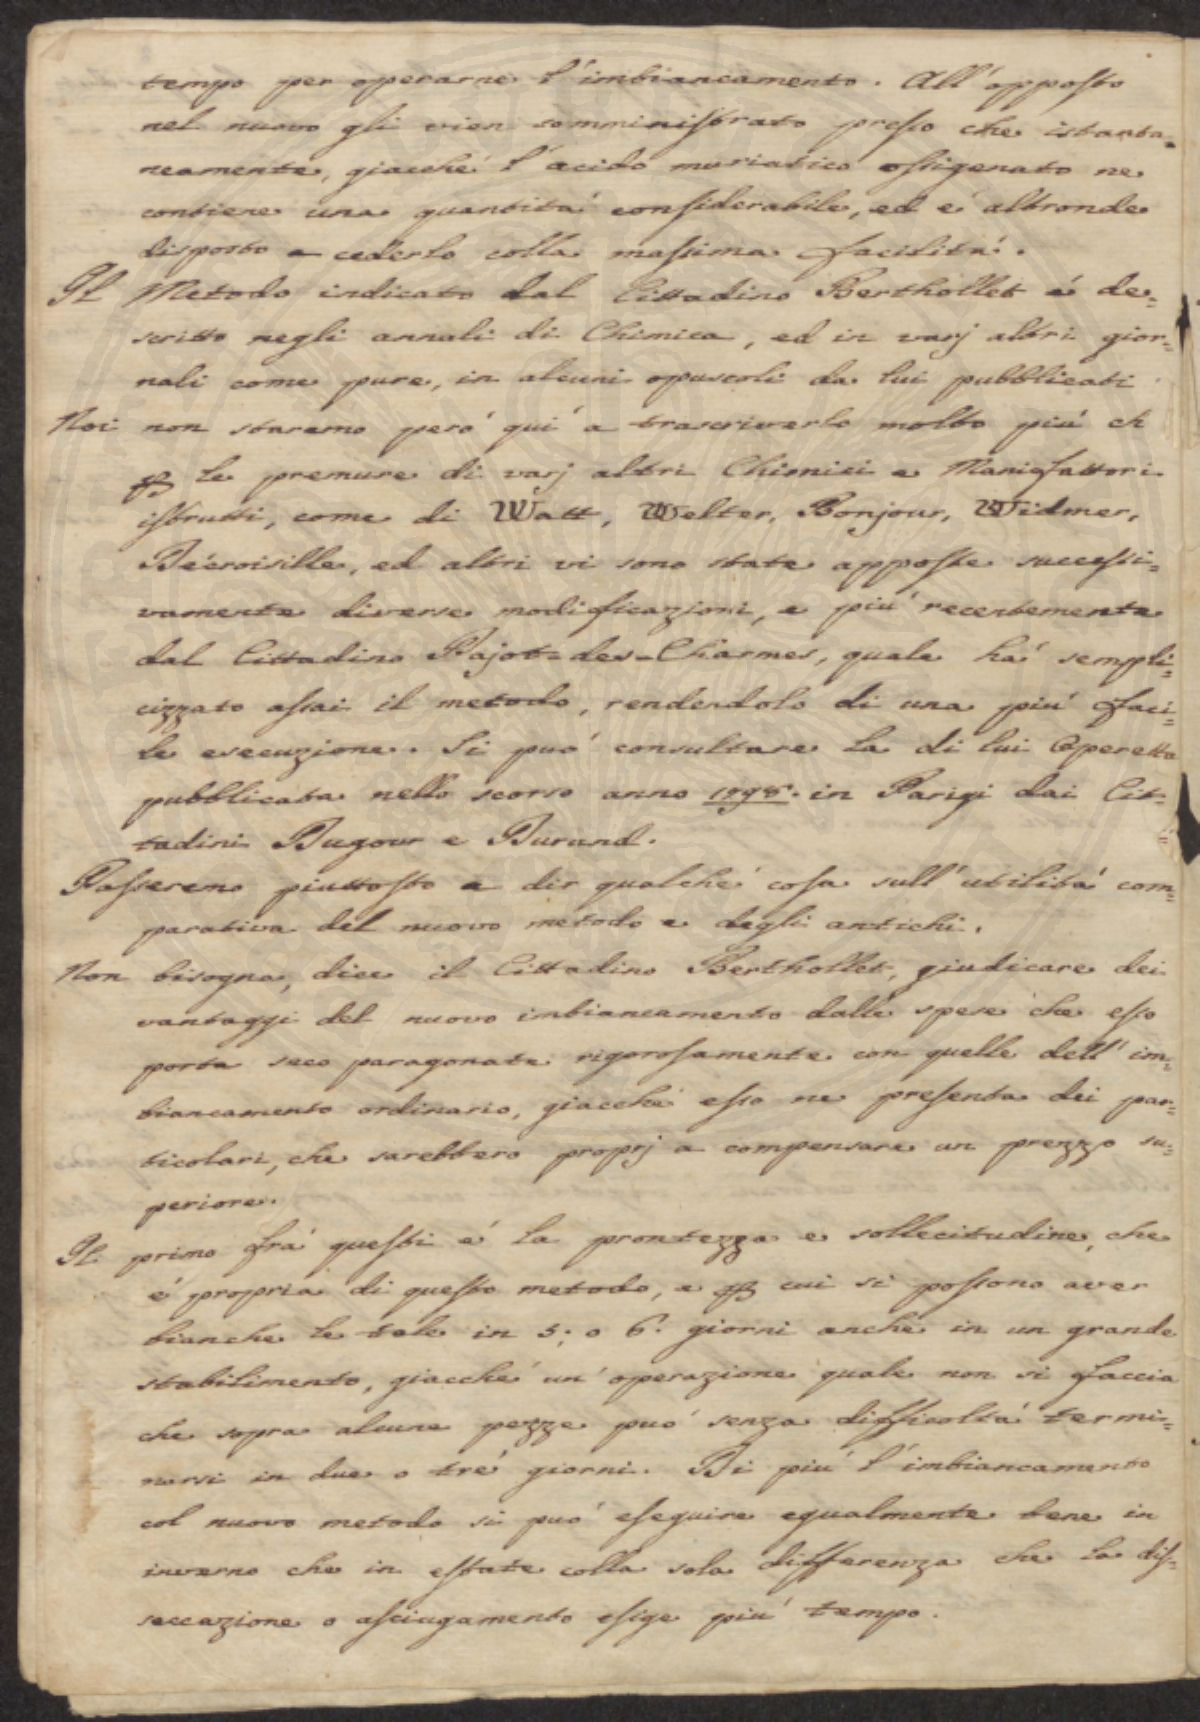 tempo per operarne l'imbiancamento. All'opposto
nel nuovo gli vien somministrato presso che istanta=
neamente, giacché l'acido muriatico ossigenato ne
contiene una quantitá considerabile, ed é altronde
disposto a cederlo colla massima facilitá.
Il Metodo indicato dal Cittadino Berthollet é de=
scritto negli annali di Chimica, ed in varj altri gior=
nali come pure, in alcuni opuscoli da lui pubblicati
Noi non staremo peró quí a trascriverlo molto piú ch
le premure di varj altri Chimici e Manifattori
istrutti, come di Watt, Welter, Bonjour, Widmer,
Décroisille, ed altri vi sono state apposte successi=
vamente diverse modificazioni, e piú recentemente
dal Cittadino Pajot=des=Charmes, quale há sempli=
cizzato assai il metodo, rendendolo di una piú faci=
le esecuzione. Si puó consultare la di lui Operetta
pubblicata nello scorso anno 1798. in Parigi dai Cit=
tadini Dugour e Durand.
Passeremo piuttosto a dir qualche cosa sull'utilitá com=
parativa del nuovo metodo e degli antichi.
Non bisogna, dice il Cittadino Berthollet, giudicare dei
vantaggi del nuovo imbiancamento dalle spese che esso
porta seco paragonate rigorosamente con quelle dell'im=
biancamento ordinario, giacché esso ne presenta dei par=
ticolari, che sarebbero proprj a compensare un prezzo su=
periore.
Il primo frá questi é la prontezza e sollecitudine, che
é propria di questo metodo, e cui si possono aver
bianche le tele in 5; o 6. giorni anche in un grande
stabilimento, giacché un'operazione quale non si faccia
che sopra alcune pezze puó senza difficoltá termi=
narsi in due o tré giorni. Di piú l'imbiancamento
col nuovo metodo si puó eseguire egualmente bene in
inverno che in estate colla sola differenza che la dis=
seccazione o asciugamento esige piú tempo.